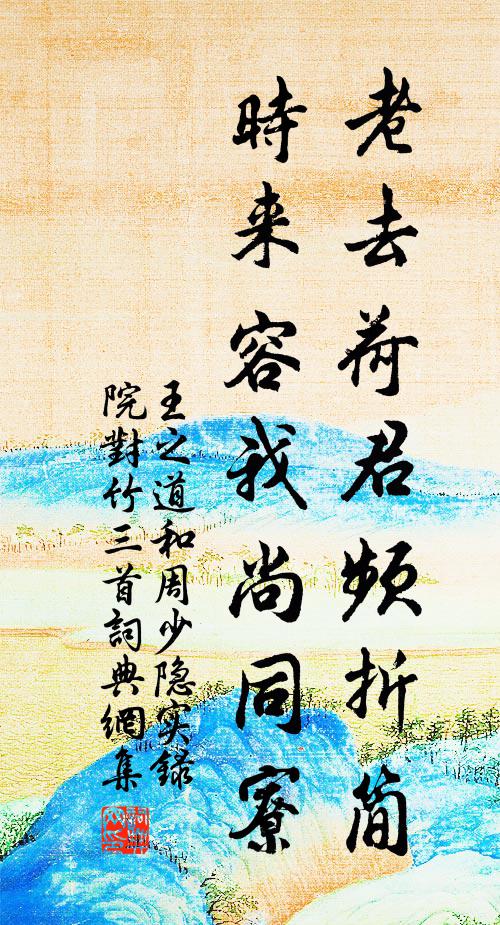 老去荷君頻折简
時来容我尚同寮
王之道和周少隐实録
院對竹三首詞典網集